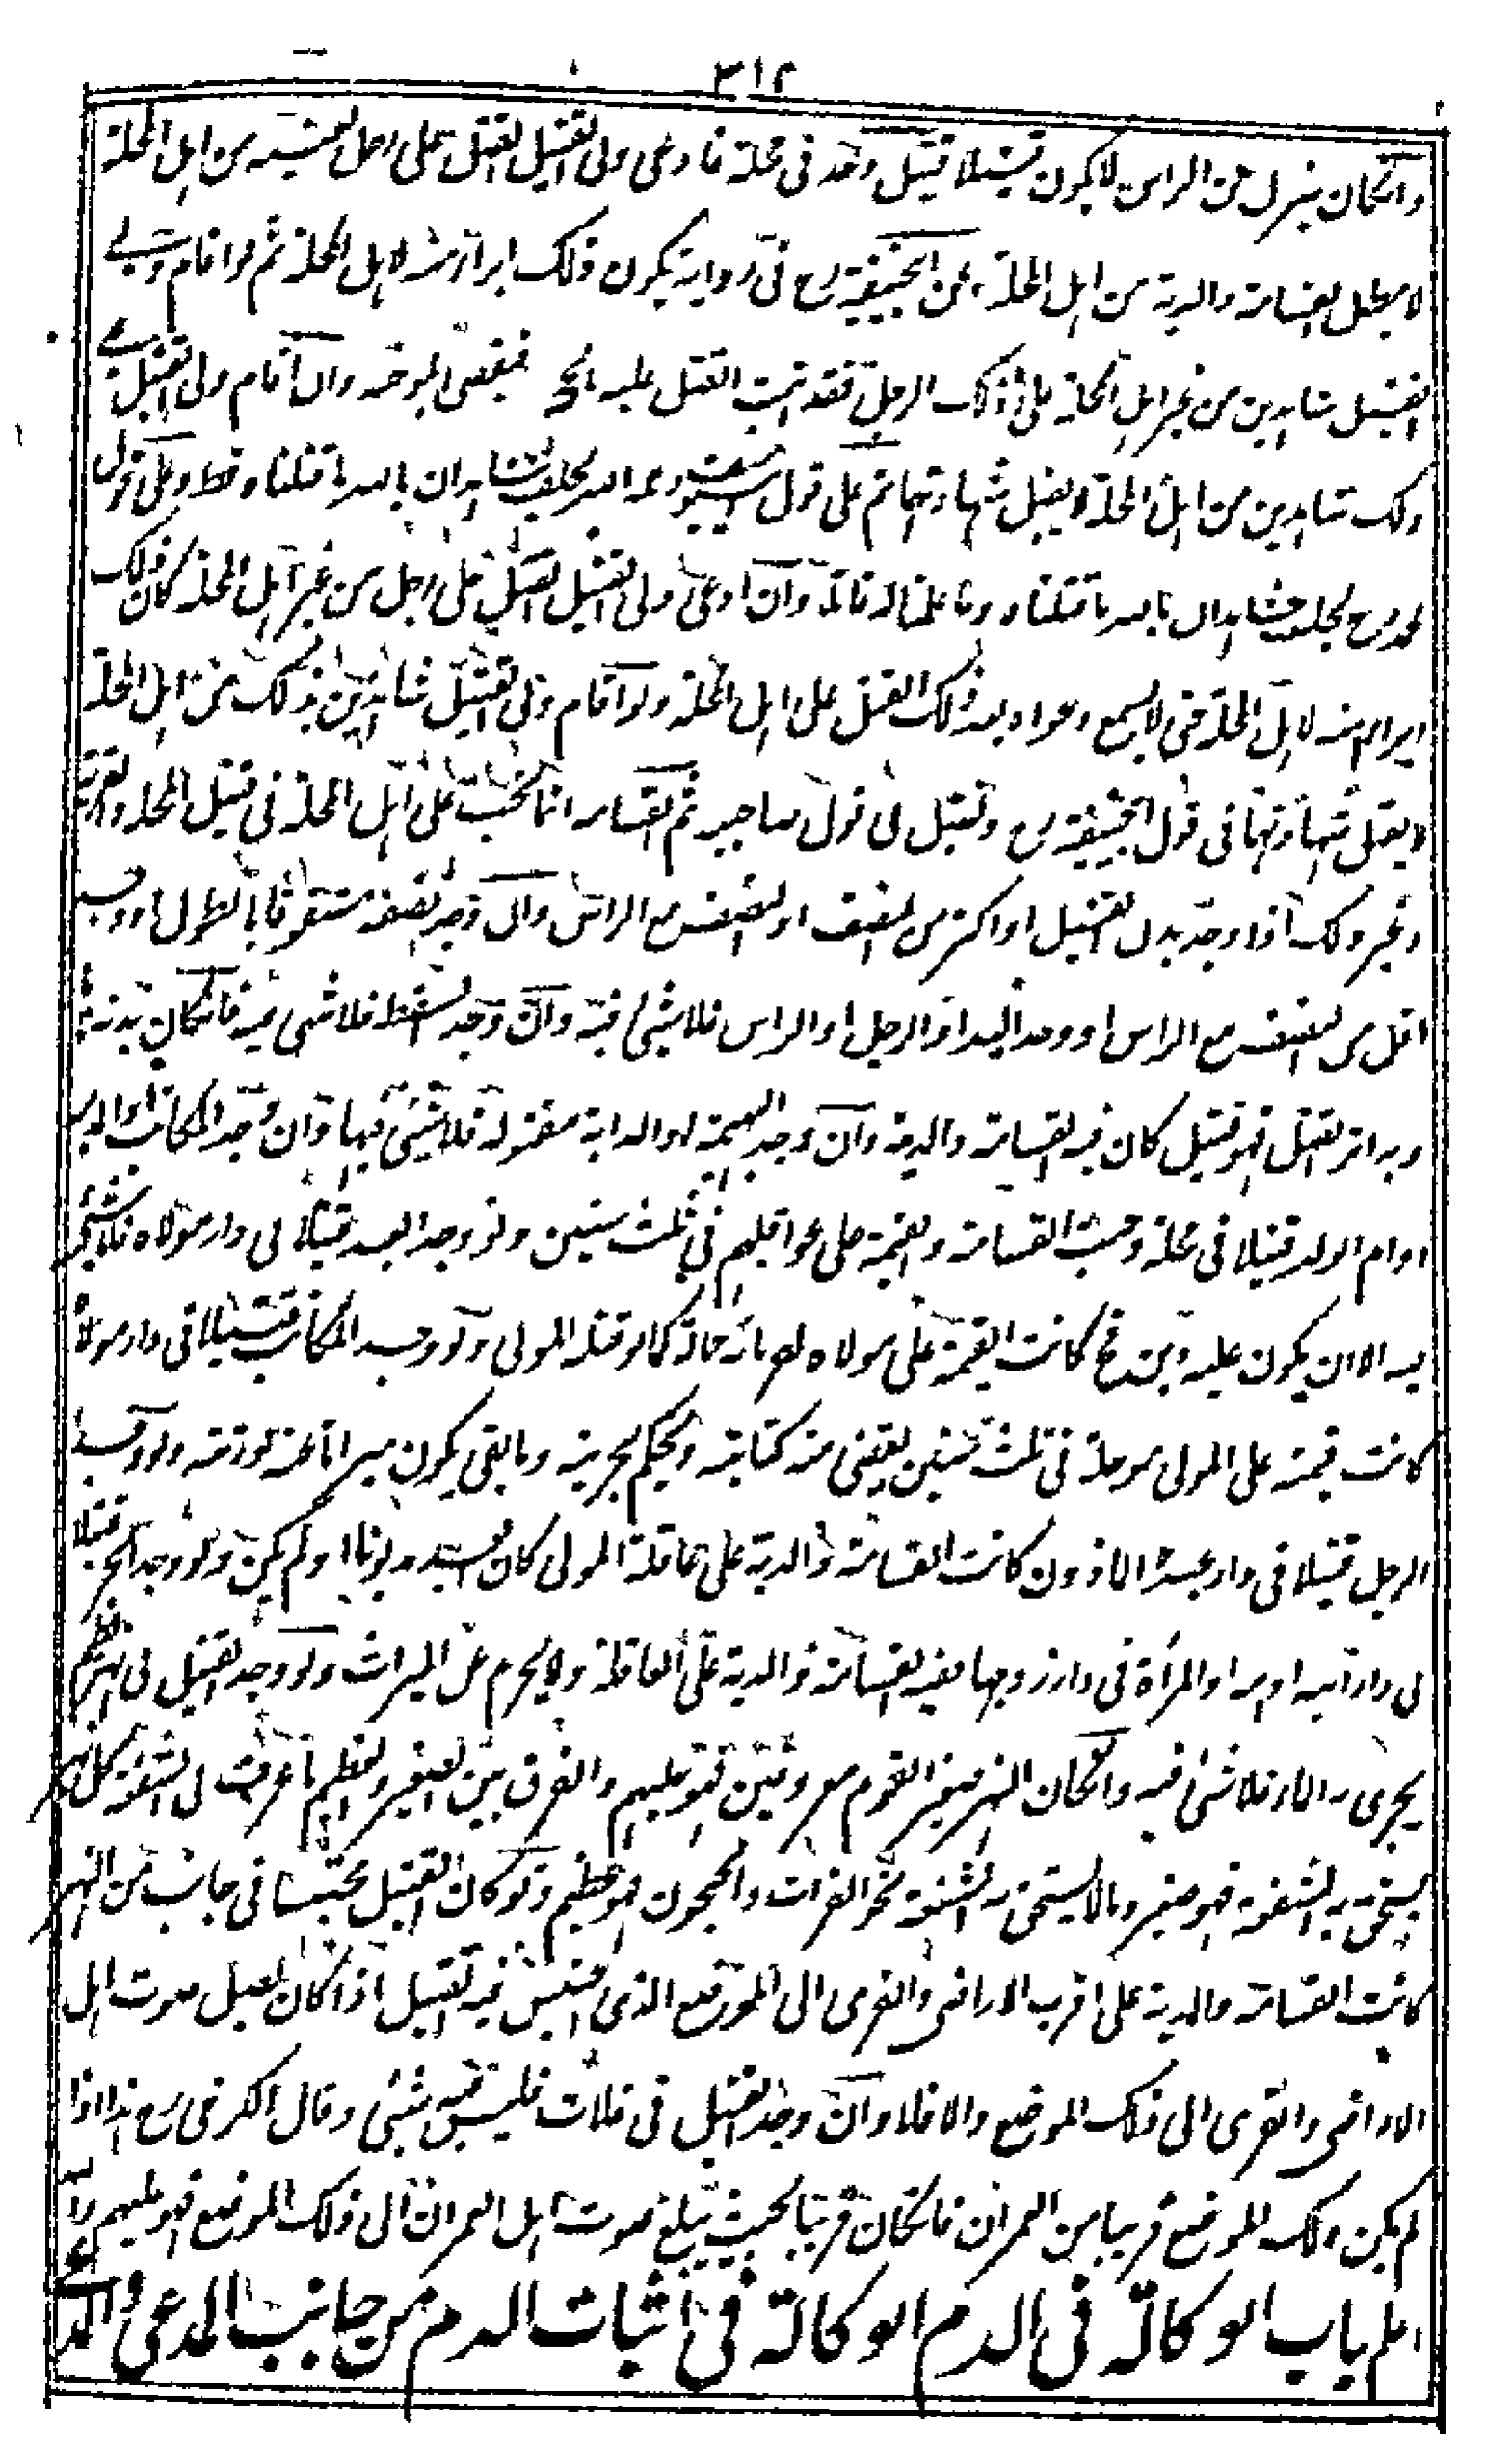 ٣١٢
وانكان ينزل من الراس لا يكون قتيلا قتيل وجد في محلة فادعى ولى القتيل القتل على رجل بعينه من اهل المحلة
لا يبطل القسامة والدية من اهل المحلة وعن ابيحنيفة رح في رواية يكون ذلك ابراء منه لاهل المحلة ثم لو اقام ولى
القتيل شاهدين من غير اهل المحلة على ذلك الرجل فقد اثبت القتل عليه فيقضى بموجبه وان اقام ولى القتيل على
ذلك شاهدين من اهل المحلة لا يقبل شهادتهما ثم على قول ابي يوسف رحمه الله يحلف الشاهدان بالله ما قتلنا فقط وعلى قول
محمد رح يحلف الشاهدان بالله ما قتلناه وما علمنا له قاتلا وان ادعى ولى القتيل القتل على رجل من غير اهل المحلة كان ذلك
ابراء منه لاهل المحلة حتى لا يسمع دعواه بعد ذلك القتل على اهل المحلة ولو اقام ولى القتيل شاهدين بذلك من اهل المحلة
لا يقبل شهادتهما في قول ابيحنيفة رح وتقبل في قول صاحبيه ثم القسامة انما تجب على اهل المحلة في قتيل المحلة والقرية
وغير ذلك اذا وجد بدن القتيل او اكثر من النصف او النصف مع الراس وان وجد نصفه مشقوقا بالطول او وجد
اقل من النصف مع الراس او وجد اليد او الرجل او الراس فلا شئ فيه وان وجد السقط فلا شئ فيه فانكان بدنه تاما
وبه اثر القتل فهو قتيل كان فيه القسامة والدية وان وجد البهيمة او الدابة مقتولة فلا شئ فيها وان وجد المكاتب او المدبر
او ام الولد قتيلا في محلة وجبت القسامة والقيمة على عواقلهم في ثلث سنين ولو وجد العبد قتيلا في دار مولاه فلا شئ
فيه الا ان يكون عليه دين فح كانت القيمة على مولاه لغرمائه حالة كما لو قتله المولى ولو وجد المكاتب قتيلا في دار مولاه
كانت قيمته على المولى مؤجلة في ثلث سنين يقضى منه كتابته ويحكم بحريته وما بقى يكون ميراثا عنه لورثته ولو وجد
الرجل قتيلا في دار عبده الماذون كانت القسامة والدية على عاقلة المولى كان العبد مديونا او لم يكن ولو وجد الحر قتيلا
في دار ابيه او امه او المرأة في دار زوجها ففيه القسامة والدية على العاقلة ولا يحرم عن الميراث ولو وجد القتيل في نهر عظيم
يجرى به الماء فلا شئ فيه وانكان النهر صغيرا لقوم معروفين فهو عليهم والفرق بين الصغير والعظيم ما عرفت في الشفعة كل نهر
يستحق به الشفعة فهو صغير وما لا يستحق به الشفعة نحو الفرات والجيحون فهو عظيم ولو كان القتيل محتبسا في جانب من النهر
كانت القسامة والدية على اقرب الاراضى والقرى الى الموضع الذى احتبس فيه القتيل اذا كان يصل صوت اهل
الاراضى والقرى الى ذلك الموضع والا فلا وان وجد القتيل في فلاة فليس فيه شئ وقال الكرخى رح هذا اذا
لم يكن ذلك الموضع قريبا من العمران فانكان قريبا بحيث يبلغ صوت اهل العمران الى ذلك الموضع فهو عليهم والله
اعلم باب الوكالة في الدم الوكالة في اثبات الدم من جانب المدعى